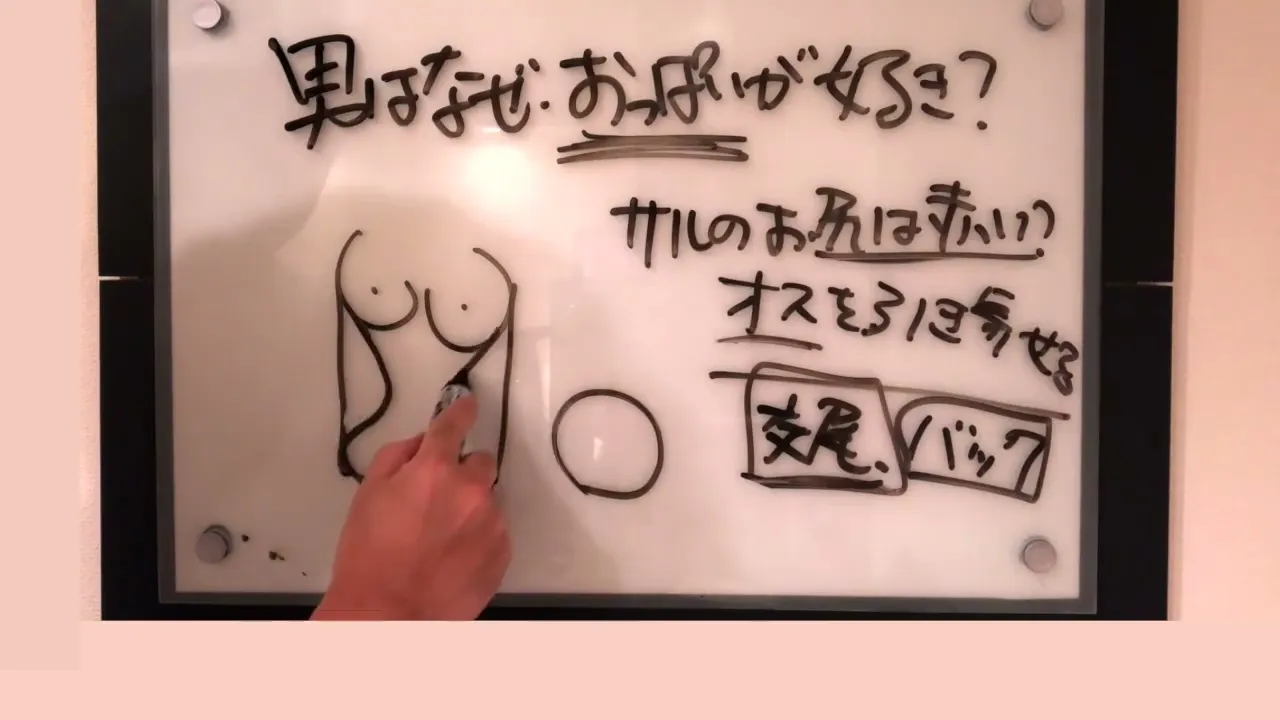 男はなぜ、おっぱいが好き?
サルのお尻は赤い?
オスを引き寄せる
交尾、 バック